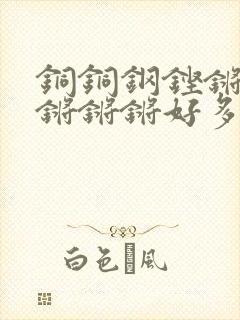 銅銅鋼鏗鏘
鏘鏘鏘好多
白色風